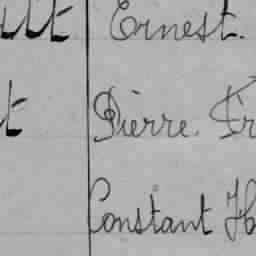 Ernest.
Pierre. Fr
Constant H